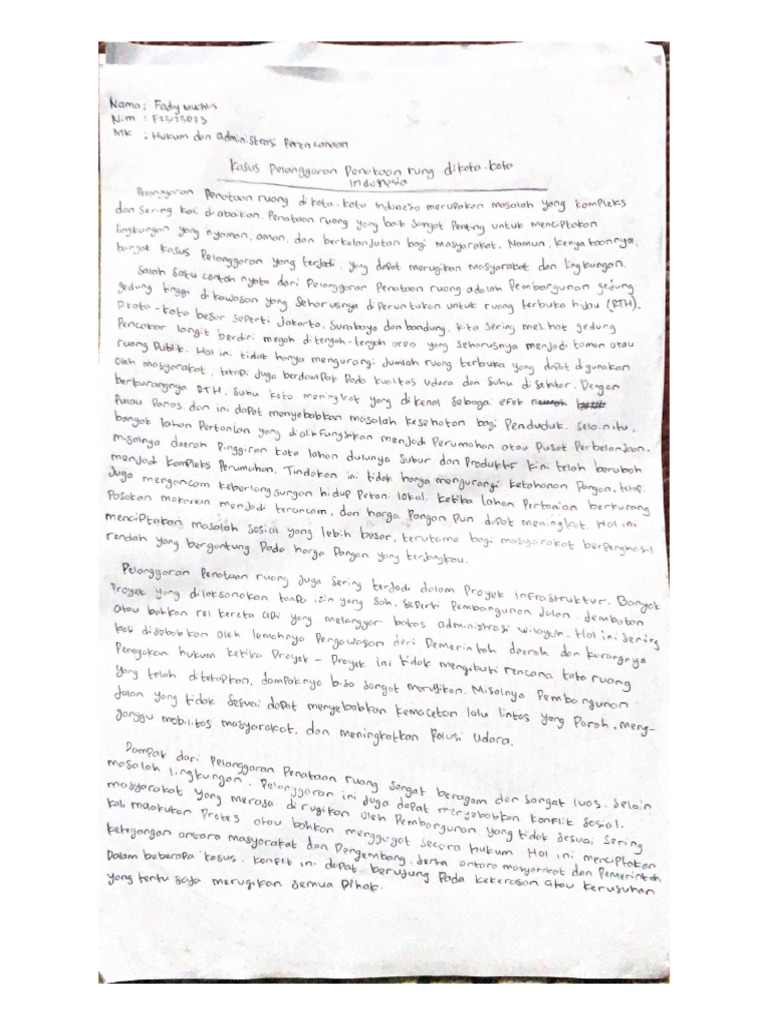 Nama : Fadly Muchlis
Nim :
MK : Hukum dan administrasi Perencanaan
Kasus Pelanggaran Penataan rung dikota-kota
Indonesia
Pelanggaran Penataan ruang dikota-kota Indonesia merupakan masalah yang kompleks
dan sering kali diabaikan. Penataan ruang yang baik sangat Penting untuk menciptakan
lingkungan yang nyaman, aman, dan berkelanjutan bagi masyarakat. Namun, kenyataannya,
banyak kasus Pelanggaran yang terjadi, yang dapat merugikan masyarakat dan lingkungan.
Salah satu contoh nyata dari Pelanggaran Penataan ruang adalah Pembangunan gedung
gedung tinggi dikawasan yang seharusnya diperuntukan untuk ruang terbuka hijau (RTH).
Dikota-kota besar seperti Jakarta, Surabaya dan bandung, kita sering melihat gedung
Pencakar langit berdiri megah ditengah-tengah area yang seharusnya menjadi taman atau
ruang Publik. Hal ini tidak hanya mengurangi Jumlah ruang terbuka yang dapat digunakan
oleh masyarakat, tetapi juga berdampak Pada kualitas udara dan suhu disekitar. Dengan
berkurangnya RTH, suhu kota meningkat yang dikenal sebagai efek
Pulau Panas, dan ini dapat menyebabkan masalah kesehatan bagi Penduduk. Selain itu,
banyak lahan Pertanian yang dialihfungsikan menjadi Perumahan atau Pusat Perbelanjaan.
misalnya daerah Pinggiran kota lahan dulunya subur dan Produktif kini telah berubah
menjadi kompleks Perumahan. Tindakan ini tidak hanya mengurangi ketahanan Pangan, tetapi
Juga mengancam keberlangsungan hidup Petani lokal. ketika lahan Pertanian berkurang
Pasokan makanan menjadi terancam, dan harga Pangan Pun dapat meningkat. Hal ini
menciptakan masalah sosial yang lebih besar, terutama bagi masyarakat berpenghasil
rendah yang bergantung Pada harga Pangan yang terjangkau.
Pelanggaran Penataan ruang juga sering terjadi dalam Proyek infrastruktur. Banyak
Proyek yang dilaksanakan tanpa izin yang sah, seperti Pembangunan Jalan, Jembatan
atau bahkan rel kereta api yang melanggar batas administrasi wilayah. Hal ini sering
kali disebabkan oleh lemahnya Pengawasan dari Pemerintah daerah dan kurangnya
Penegakan hukum ketika Proyek-Proyek ini tidak mengikuti rencana tata ruang
yang telah ditetapkan, dampaknya bisa sangat merugikan. Misalnya Pembangunan
Jalan yang tidak sesuai dapat menyebabkan kemacetan lalu lintas yang Parah, meng-
ganggu mobilitas masyarakat, dan meningkatkan Polusi udara.
Dampak dari Pelanggaran Penataan ruang sangat beragam dan sangat luas. Selain
masalah lingkungan, Pelanggaran ini juga dapat menyebabkan konflik sosial.
masyarakat yang merasa dirugikan oleh Pembangunan yang tidak sesuai sering
kali melakukan Protes atau bahkan menggugat secara hukum Hal ini menciptakan
ketegangan antara masyarakat dan Pengembang, serta antara masyarakat dan Pemerintah
Dalam beberapa kasus, konflik ini dapat berujung Pada kekerasan atau kerusuhan
yang tentu saja merugikan semua Pihak.